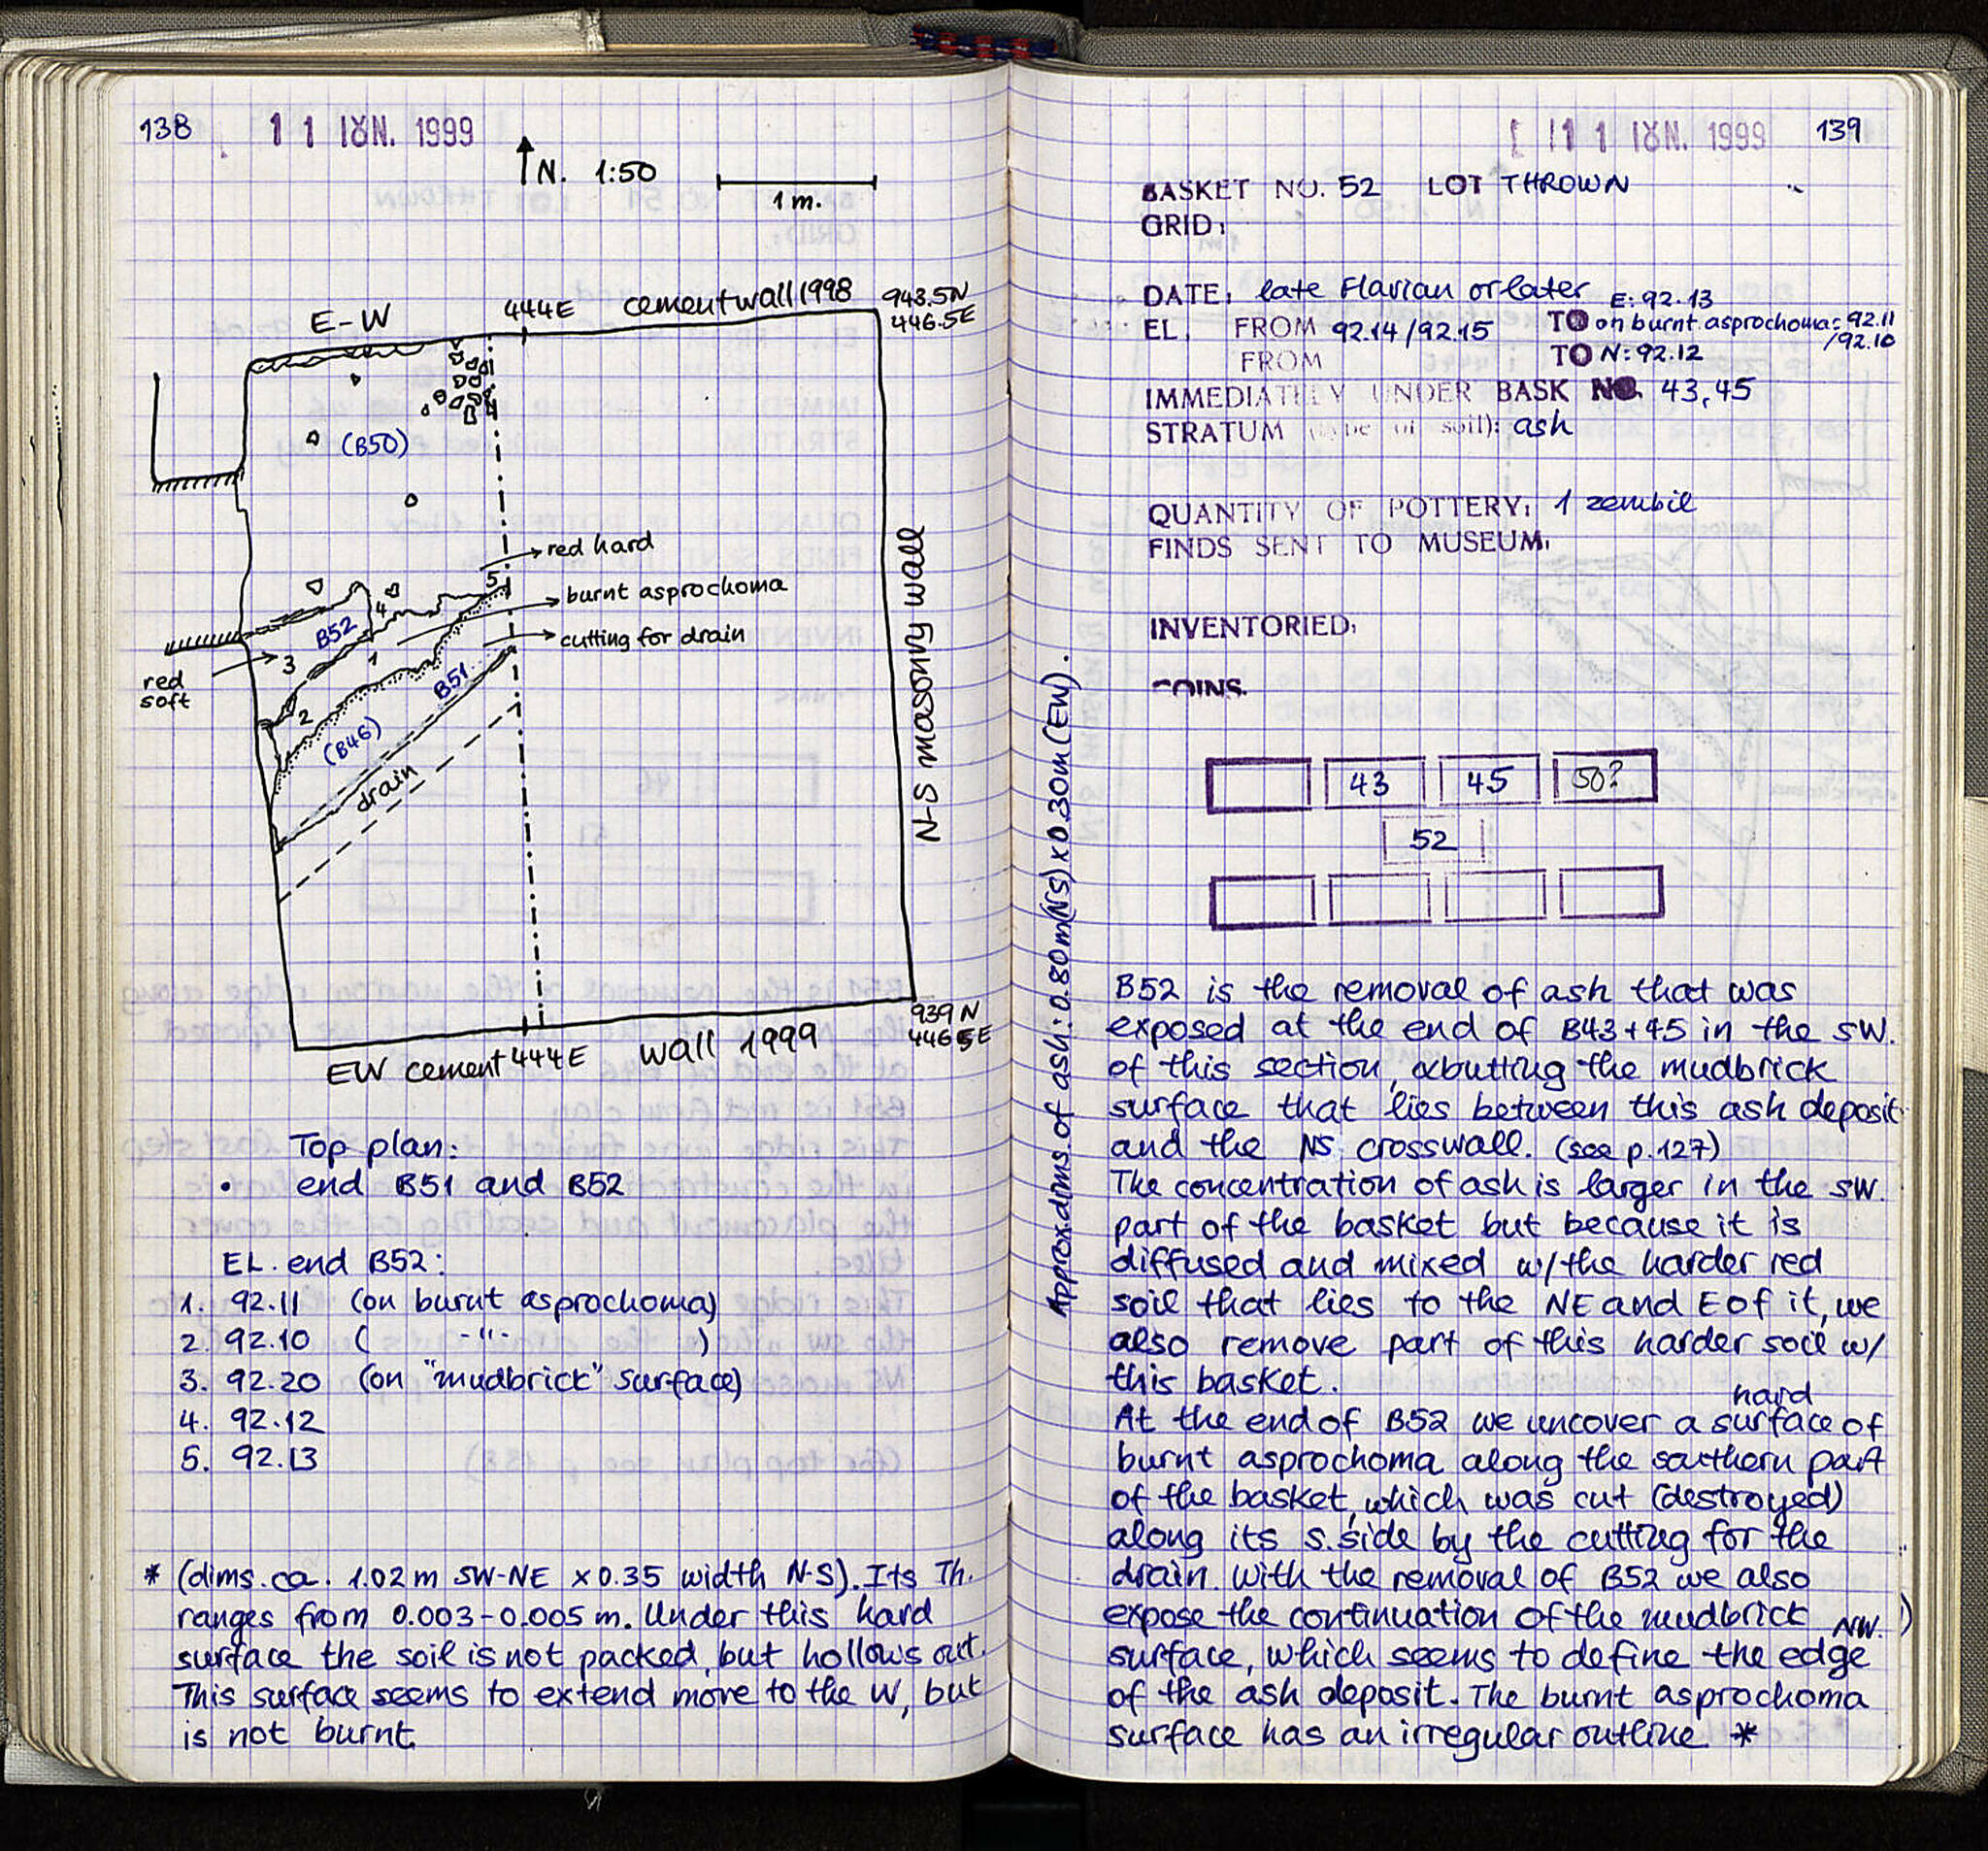 138
11 ΙΟΥΝ. 1999
N. 1:50
1 m.
E-W
444E
cement wall 1998
943.5N
446.5E
(B50)
red hard
5
burnt asprochoma
4
B52
cutting for drain
3
1
red
soft
B51
2
(B46)
drain
N-S masonry wall
939 N
446.5E
EW cement 444E wall 1999
Top plan:
• end B51 and B52
EL. end B52:
1. 92.11 (on burnt asprochoma)
2. 92.10 ( -"- )
3. 92.20 (on "mudbrick" surface)
4. 92.12
5. 92.13
* (dims. ca. 1.02 m SW-NE x 0.35 width N-S). Its Th.
ranges from 0.003-0.005 m. Under this hard
surface the soil is not packed, but hollows out.
This surface seems to extend more to the W, but
is not burnt.
11 ΙΟΥΝ. 1999
139
BASKET NO. 52 LOT THROWN
GRID:
DATE: late Flavian or later
E: 92.13
EL. FROM 92.14/92.15 TO on burnt asprochoma: 92.11
/92.10
FROM TO N: 92.12
IMMEDIATELY UNDER BASK NO. 43,45
STRATUM (type of soil): ash
QUANTITY OF POTTERY: 1 zembil
FINDS SENT TO MUSEUM:
INVENTORIED:
COINS.
43 45 50?
52
Approx. dims. of ash: 0.80m (NS) x 0.30m (EW).
B52 is the removal of ash that was
exposed at the end of B43+45 in the SW.
of this section, abutting the mudbrick
surface that lies between this ash deposit
and the NS crosswall. (see p.127)
The concentration of ash is larger in the SW.
part of the basket but because it is
diffused and mixed w/the harder red
soil that lies to the NE and E of it, we
also remove part of this harder soil w/
this basket.
hard
At the end of B52 we uncover a surface of
burnt asprochoma along the southern part
of the basket, which was cut (destroyed)
along its S. side by the cutting for the
drain. With the removal of B52 we also
expose the continuation of the mudbrick
NW.
surface, which seems to define the edge
of the ash deposit. The burnt asprochoma
surface has an irregular outline *